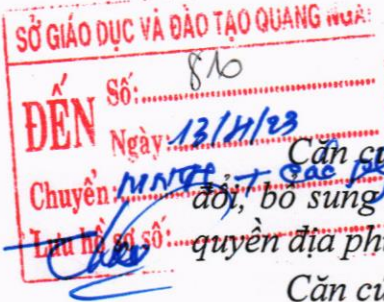 SỞ GIÁO DỤC VÀ ĐÀO TẠO QUẢNG NGÃI
ĐẾN
Số: 810
Ngày: 13/4/23
Chuyển:
Lưu hồ sơ số:
Căn cứ
đổi, bổ sung
quyền địa phư
Căn cứ